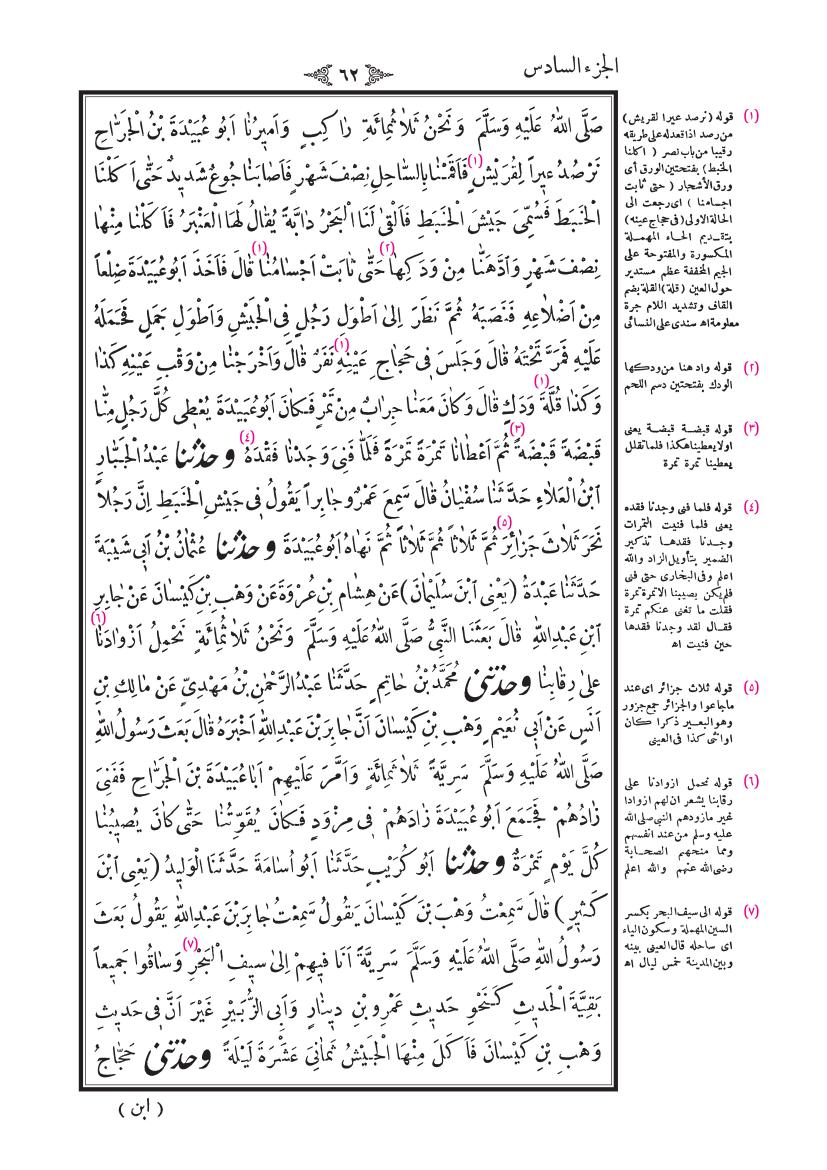 الجزء السادس
٦٢
صَلَّى اللّٰهُ عَلَيْهِ وَسَلَّمَ وَنَحْنُ ثَلاٰثُمِائَةِ رٰاكِبٍ وَاَمِيرُنٰا اَبُو عُبَيْدَةَ بْنُ الْجَرّٰاحِ
نَرْصُدُ عِيراً لِقُرَيْشٍ (١) فَاَقَمْنٰا بِالسّٰاحِلِ نِصْفَ شَهْرٍ فَاَصٰابَنٰا جُوعٌ شَدِيدٌ حَتّٰى اَكَلْنَا
الْخَبَطَ فَسُمِّيَ جَيْشَ الْخَبَطِ فَاَلْقٰى لَنَا الْبَحْرُ دٰابَّةً يُقٰالُ لَهَا الْعَنْبَرُ فَاَكَلْنٰا مِنْهٰا
نِصْفَ شَهْرٍ وَادَّهَنّٰا مِنْ وَدَكِهٰا (٢) حَتّٰى ثٰابَتْ اَجْسٰامُنٰا (١) قٰالَ فَاَخَذَ اَبُو عُبَيْدَةَ ضِلَعاً
مِنْ اَضْلاٰعِهِ فَنَصَبَهُ ثُمَّ نَظَرَ اِلىٰ اَطْوَلِ رَجُلٍ فِي الْجَيْشِ وَاَطْوَلِ جَمَلٍ فَحَمَلَهُ
عَلَيْهِ فَمَرَّ تَحْتَهُ قٰالَ وَجَلَسَ فِي حَجٰاجِ عَيْنِهِ (١) نَفَرٌ قٰالَ وَاَخْرَجْنٰا مِنْ وَقْبِ عَيْنِهِ كَذٰا
وَكَذٰا قُلَّةَ (١) وَدَكٍ قٰالَ وَكٰانَ مَعَنٰا جِرٰابٌ مِنْ تَمْرٍ فَكٰانَ اَبُو عُبَيْدَةَ يُعْطِي كُلَّ رَجُلٍ مِنّٰا
قَبْضَةً قَبْضَةً (٣) ثُمَّ اَعْطٰانٰا تَمْرَةً تَمْرَةً فَلَمّٰا فَنِيَ وَجَدْنٰا فَقْدَهُ (٤) وحدثنا عَبْدُ الْجَبّٰارِ
ابْنُ الْعَلاٰءِ حَدَّثَنٰا سُفْيٰانُ قٰالَ سَمِعَ عَمْرٌو جٰابِراً يَقُولُ فِي جَيْشِ الْخَبَطِ اِنَّ رَجُلاً
نَحَرَ ثَلاٰثَ جَزٰائِرَ (٥) ثُمَّ ثَلاٰثاً ثُمَّ ثَلاٰثاً ثُمَّ نَهٰاهُ اَبُو عُبَيْدَةَ وحدثنا عُثْمٰانُ بْنُ اَبِي شَيْبَةَ
حَدَّثَنٰا عَبْدَةُ (يَعْنِي ابْنَ سُلَيْمٰانَ) عَنْ هِشٰامِ بْنِ عُرْوَةَ عَنْ وَهْبِ بْنِ كَيْسٰانَ عَنْ جٰابِرِ
ابْنِ عَبْدِ اللّٰهِ قٰالَ بَعَثَنَا النَّبِيُّ صَلَّى اللّٰهُ عَلَيْهِ وَسَلَّمَ وَنَحْنُ ثَلاٰثُمِائَةٍ نَحْمِلُ اَزْوٰادَنٰا (٦)
عَلىٰ رِقٰابِنٰا وحدثنى مُحَمَّدُ بْنُ حٰاتِمٍ حَدَّثَنٰا عَبْدُ الرَّحْمٰنِ بْنُ مَهْدِيٍّ عَنْ مٰالِكِ بْنِ
اَنَسٍ عَنْ اَبِي نُعَيْمٍ وَهْبِ بْنِ كَيْسٰانَ اَنَّ جٰابِرَ بْنَ عَبْدِ اللّٰهِ اَخْبَرَهُ قٰالَ بَعَثَ رَسُولُ اللّٰهِ
صَلَّى اللّٰهُ عَلَيْهِ وَسَلَّمَ سَرِيَّةً ثَلاٰثَمِائَةٍ وَاَمَّرَ عَلَيْهِمْ اَبٰا عُبَيْدَةَ بْنَ الْجَرّٰاحِ فَفَنِيَ
زٰادُهُمْ فَجَمَعَ اَبُو عُبَيْدَةَ زٰادَهُمْ فِي مِزْوَدٍ فَكٰانَ يُقَوِّتُنٰا حَتّٰى كٰانَ يُصِيبُنٰا
كُلَّ يَوْمٍ تَمْرَةٌ وحدثنا اَبُو كُرَيْبٍ حَدَّثَنٰا اَبُو اُسٰامَةَ حَدَّثَنَا الْوَلِيدُ (يَعْنِي ابْنَ
كَثِيرٍ) قٰالَ سَمِعْتُ وَهْبَ بْنَ كَيْسٰانَ يَقُولُ سَمِعْتُ جٰابِرَ بْنَ عَبْدِ اللّٰهِ يَقُولُ بَعَثَ
رَسُولُ اللّٰهِ صَلَّى اللّٰهُ عَلَيْهِ وَسَلَّمَ سَرِيَّةً اَنَا فِيهِمْ اِلىٰ سِيفِ الْبَحْرِ (٧) وَسٰاقُوا جَمِيعاً
بَقِيَّةَ الْحَدِيثِ كَنَحْوِ حَدِيثِ عَمْرِو بْنِ دِينٰارٍ وَاَبِي الزُّبَيْرِ غَيْرَ اَنَّ فِي حَدِيثِ
وَهْبِ بْنِ كَيْسٰانَ فَاَكَلَ مِنْهَا الْجَيْشُ ثَمٰانِيَ عَشْرَةَ لَيْلَةً وحدثنى حَجّٰاجُ
( ابن )
(١) قوله (نرصد عيرا لقريش)
من رصد اذا قعد له على طريقه
رقيبا من باب نصر ( اكلنا
الخبط) بفتحتين الورق أى
ورق الأشجار ( حتى ثابت
اجسامنا ) اى رجعت الى
الحالة الاولى (فى حجاج عينه)
بتقديم الحاء المهملة
المكسورة والمفتوحة على
الجيم المخففة عظم مستدير
حول العين (قلة) القلة بضم
القاف وتشديد اللام جرة
معلومة اه سندى على النسائى
(٢) قوله وادهنا من ودكها
الودك بفتحتين دسم اللحم
(٣) قوله قبضة قبضة يعنى
اولا يعطيناهكذا فلما تقلل
يعطينا تمرة تمرة
(٤) قوله فلما فنى وجدنا فقده
يعنى فلما فنيت التمرات
وجدنا فقدها تذكير
الضمير بتأويل الزاد والله
اعلم وفى البخارى حتى فنى
فلم يكن يصيبنا الاتمرة تمرة
فقلت ما تغنى عنكم تمرة
فقال لقد وجدنا فقدها
حين فنيت اه
(٥) قوله ثلاث جزائر اى عند
ماجاعوا والجزائر جمع جزور
وهو البعير ذكرا كان
او انثى كذا فى العينى
(٦) قوله نحمل ازوادنا على
رقابنا يشعر ان لهم ازوادا
غير مازودهم النبى صلى الله
عليه وسلم من عند انفسهم
ومما منحهم الصحابة
رضى الله عنهم والله اعلم
(٧) قوله الى سيف البحر بكسر
السين المهملة وسكون الياء
اى ساحله قال العينى بينه
وبين المدينة خمس ليال اه